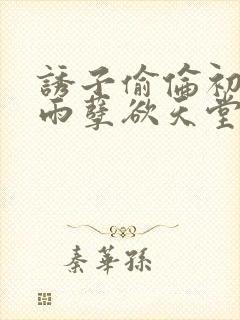 誘子偷倫初
雨孽欲天堂
秦華孫